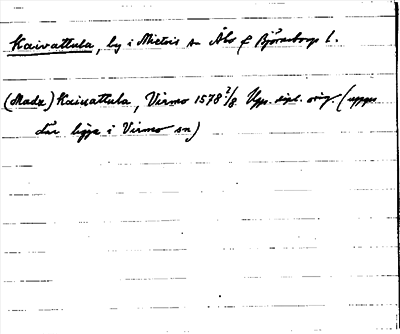 Kaivattula, by i Mietois sn Åbo & Björneborgs l.
(Madz) Kaiuattula, Virmo 1578 2/8 Upps. dipl. orig. (uppges
där ligga i Virmo sn)